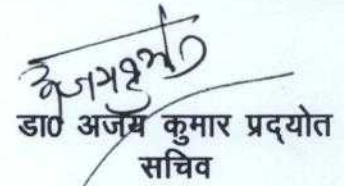 डा0 अजय कुमार प्रद्योत
सचिव